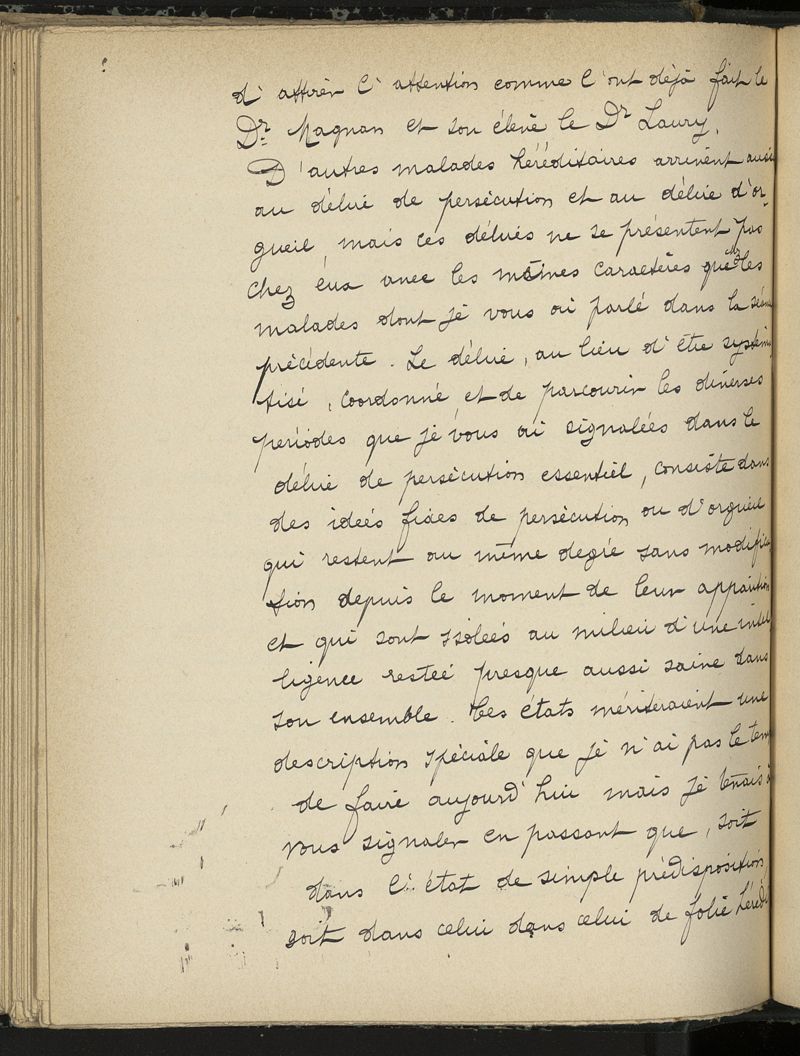 d'attirer l'attention comme l'ont déjà fait le
Dr Magnan et son élève le Dr Laury.
D'autres malades héréditaires arrivent aussi
au délire de persécution et au délire d'or-
gueil, mais ces délires ne se présentent pas
chez eux avec les mêmes caractères que chz les
malades dont je vous ai parlé dans la séan
précédente. Le délire, au lieu d'être systéma
tisé, coordonné et de parcourir les diverses
périodes que je vous ai signalées dans le
délire de persécution essentiel, consiste dans
des idées fixes de persécution ou d'orgueil
qui restent au même degré sans modifica
tion depuis le moment de leur apparition
et qui sont isolées au milieu d'une intel
ligence restée presque aussi saine dans
son ensemble. Ces états mériteraient une
description spéciale que je n'ai pas le temps
de faire aujourd'hui mais je tenais à
vous signaler en passant que, soit
dans l'état de simple prédisposition,
soit dans celui dans celui de folie hérédi